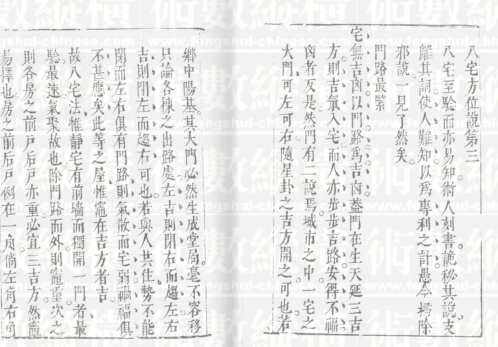 八宅方位說第三
八宅至驗而亦易知術人刻書詭秘其說支
離其詞使人難知以為專利之計愚今掃除
邪說一見了然矣
門路最緊
宅無吉凶以門路為吉凶蓋門在生天延三吉
方則吉氣入宅而人亦步步吉路安得不福
凶者反是然門有二說焉城市之中一宅之
大門可左可右隨星卦之吉方開之可也若
鄉中陽基其大門必然生成堂局毫不容移
只論各棟之出路處左吉則閉右而趨左右
吉則閉左而趨右可也若與人共住勢不能
閉而左右俱有門路則氣散而宅弱禍福俱
不甚應矣此等之屋惟竈在吉方者吉
故八宅法惟靜宅有前墻而獨開一門者最
驗最速氣聚故也除門路而外則竈臺次之
則各房之前戶后戶亦重必宜三吉方然
擇也房之前后戶倒在一 倘左有右